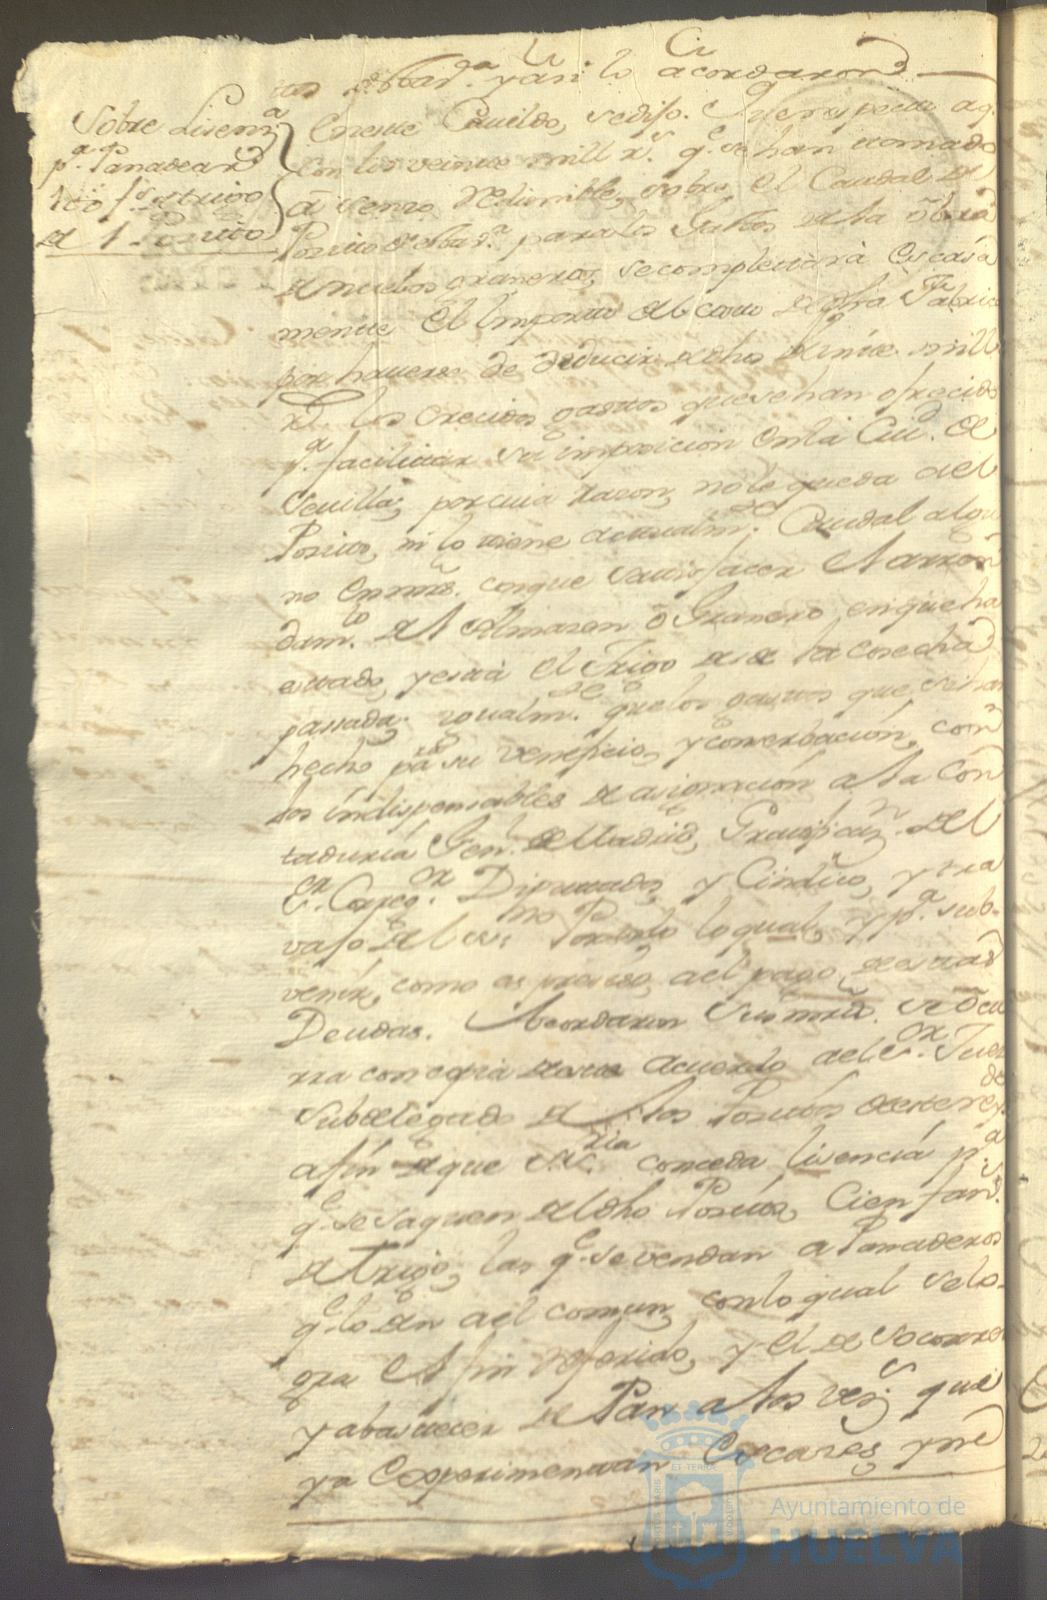 tas de esta y asi lo acordaron
Sobre Lisenª
pª Panadear
100 fs trigo
del Posito
En este Cavildo, se dijo. Que respecto a qe.
con los veinte mill rs. qe. se han tomado
a senso redimible, sobre el Caudal del
Posito para los gastos de la obra
de nuebos graneros, se completara escasa
mente el Importe del costo de dha Fabrica
por haverse de deducir de dhos veinte mill
rs. los crecidos gastos que se han ofrecido
pª. facilitar su imposicion en la Ciud. de
Sevilla, por cuia razon, no le queda a el
Posito, ni lo tiene actualmte. Caudal algu
no en mrs. con que satisfacer el arren
damto. del Almazen o Granero en que ha
estado, y está el Trigo desde la cosecha
passada; igualmte. que los gastos que se han
hecho para su veneficio, y conserbación, con
los indispensables de asignación a la Con
taduría Genl. de Madrid, Gratificazn. del
Sr. Corregor. Diputados, y Cindico, y tra
vajo del mismo Posito lo qual, y pª. sub-
venir, como es presiso, a el pago de estas
Deudas. Acordaron Sus mrds. se ocu
rra con copia de este acuerdo a el Sr. Juez
Subdelegado de los Positos de este reydo
a fin de que Sª. conceda lisencia pª
qe. se saquen del dho Posito, Cien fans.
de trigo, las qe. se vendan a Panaderos
qe. lo den a el comun, con lo qual se lo-
gra el fin referido, y el de socorrer
y abastecer de Pan a los vesos. que
ya experimentan Escases, y ne
Ayuntamiento de
HUELVA